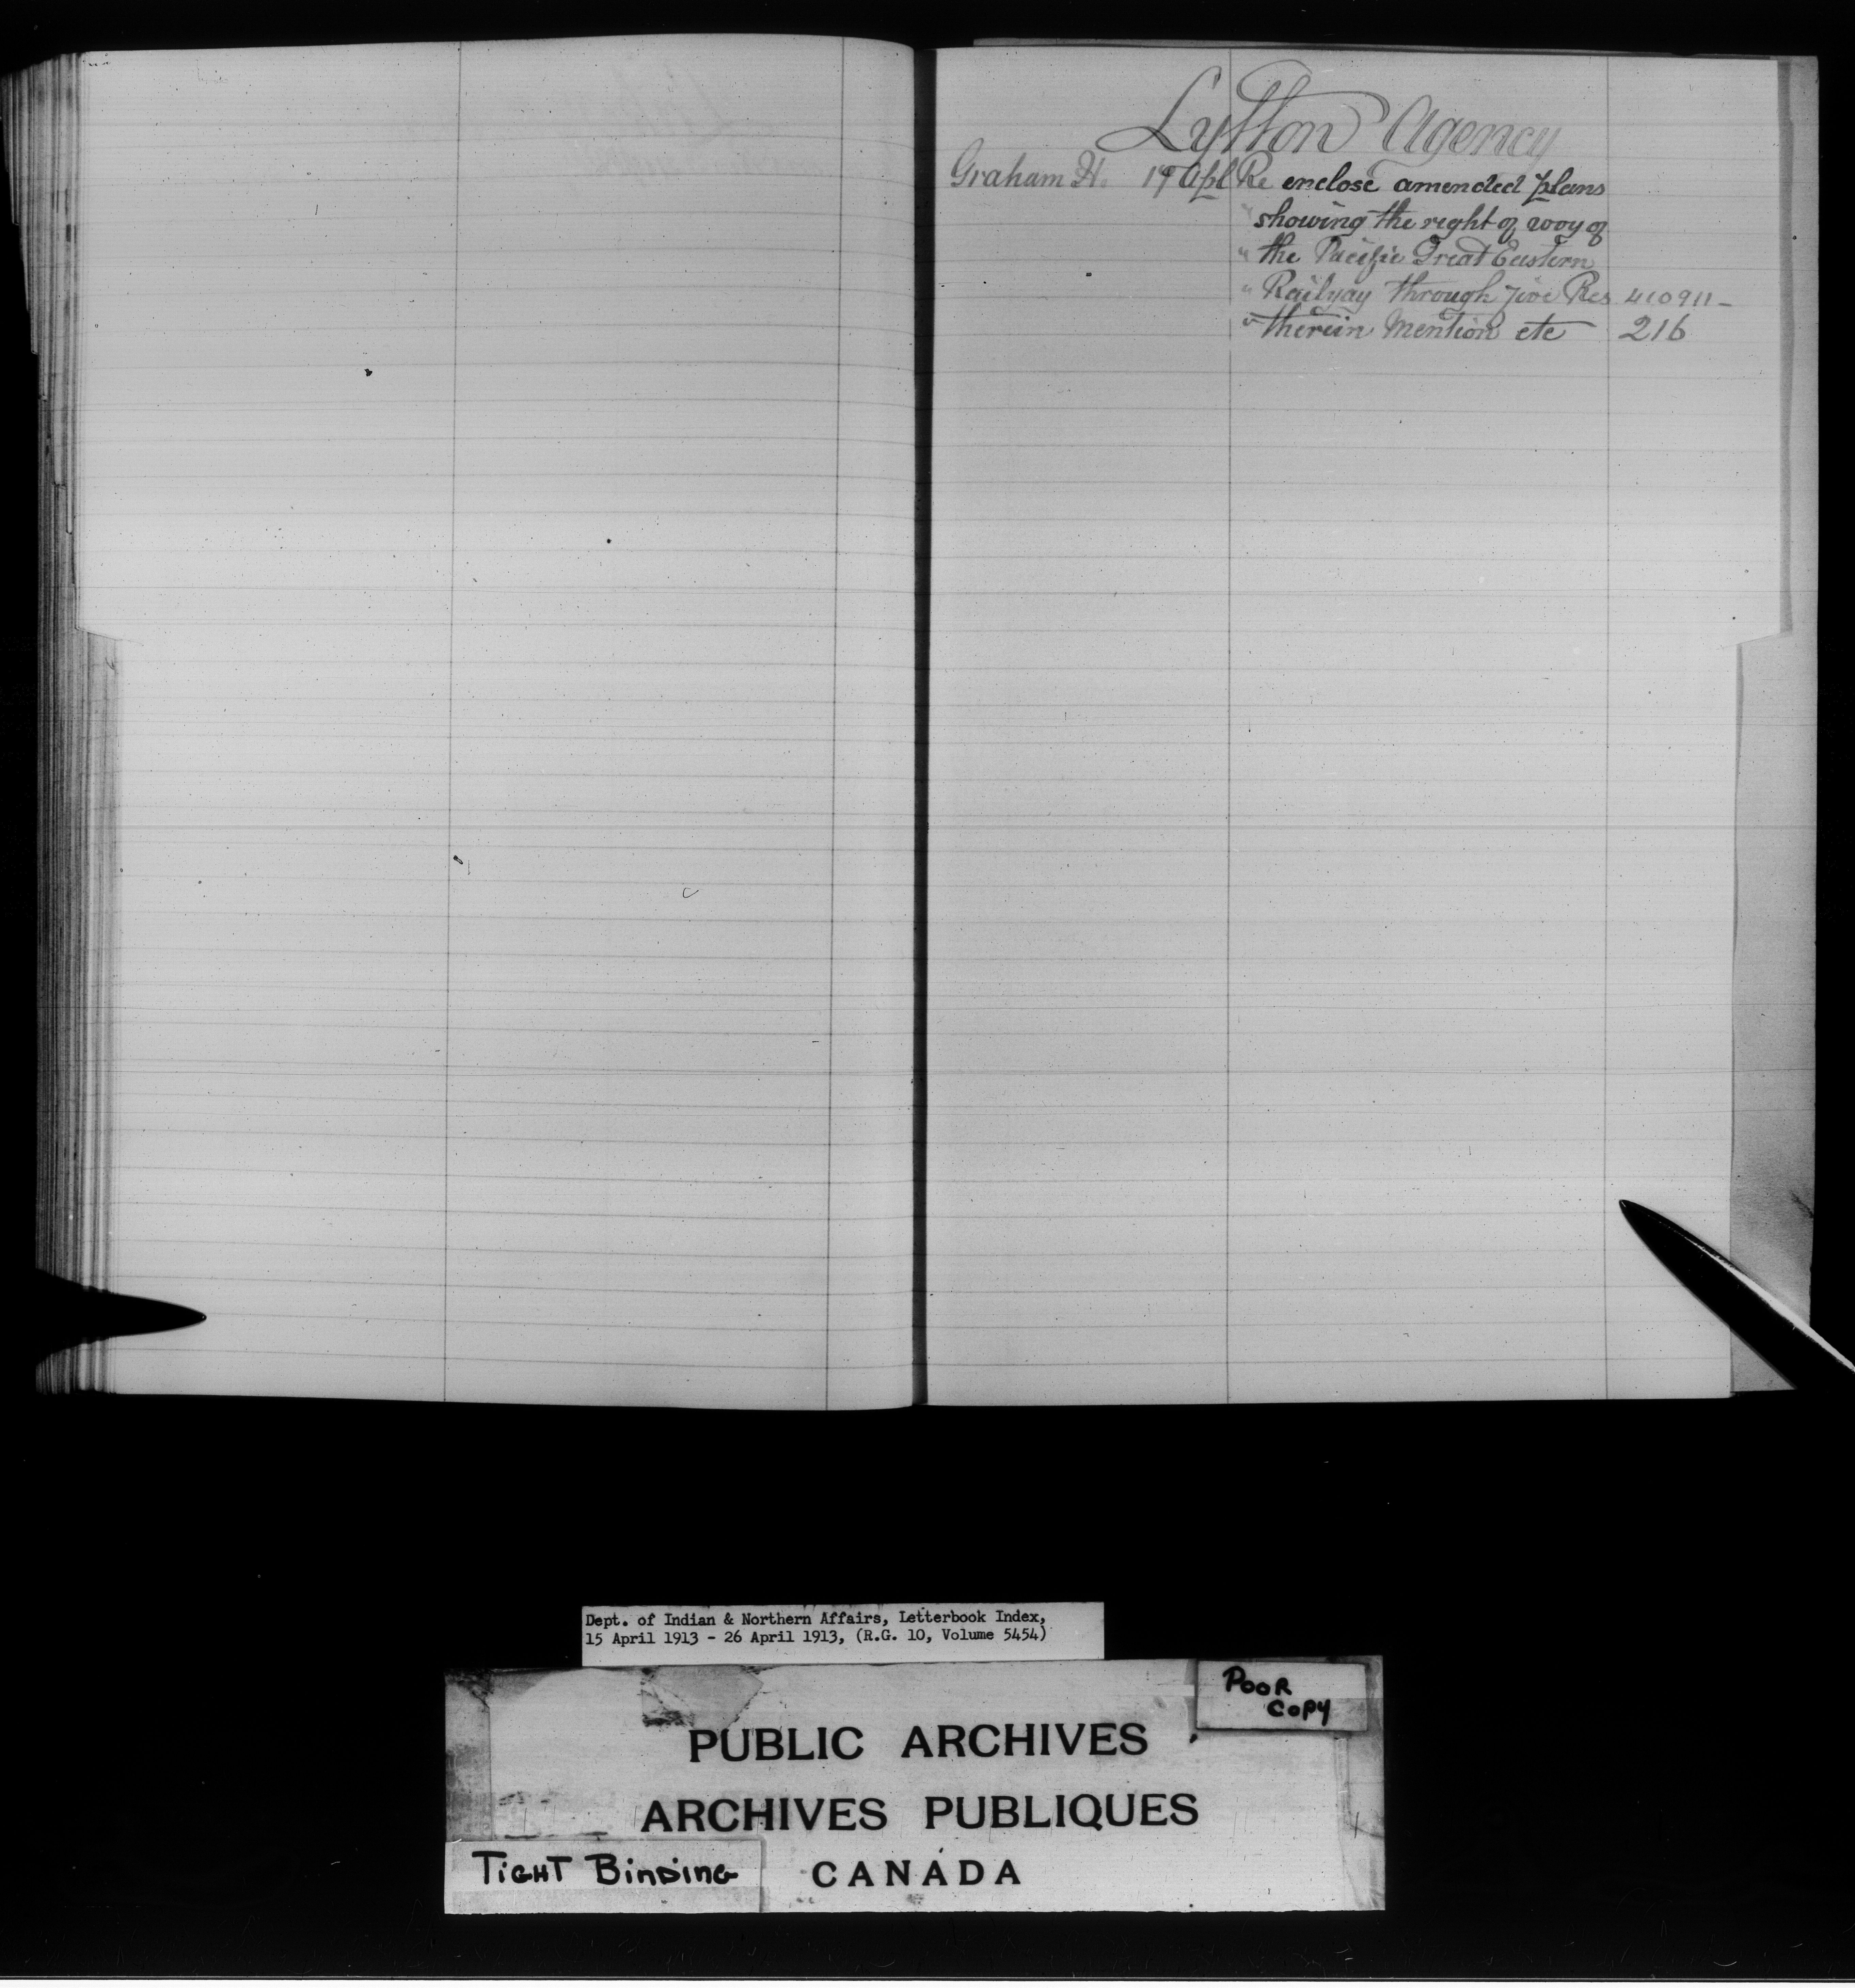 Lytton Agency
Graham H. 19 Apl Re enclose amended plans
" showing the right of way of
" the Pacific Great Eastern
" Railyay through five Res 410911-
" therein Mention etc 216
Dept. of Indian & Northern Affairs, Letterbook Index,
15 April 1913 - 26 April 1913, (R.G. 10, Volume 5454)
POOR
COPY
PUBLIC ARCHIVES
ARCHIVES PUBLIQUES
TIGHT BINDING
CANADA